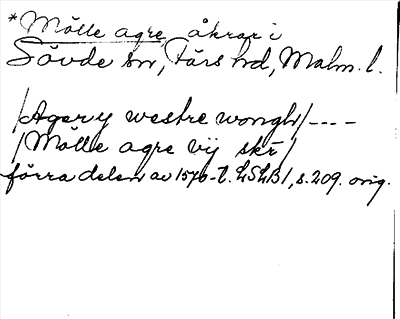 *Mölle agre, åkrar i
Sövde sn, Färs hd, Malm. l.
/Agery westre wongh/ ----
/Mölle agre vij skr/
förra delen av 1570-t. LSLB1, s. 209. orig.